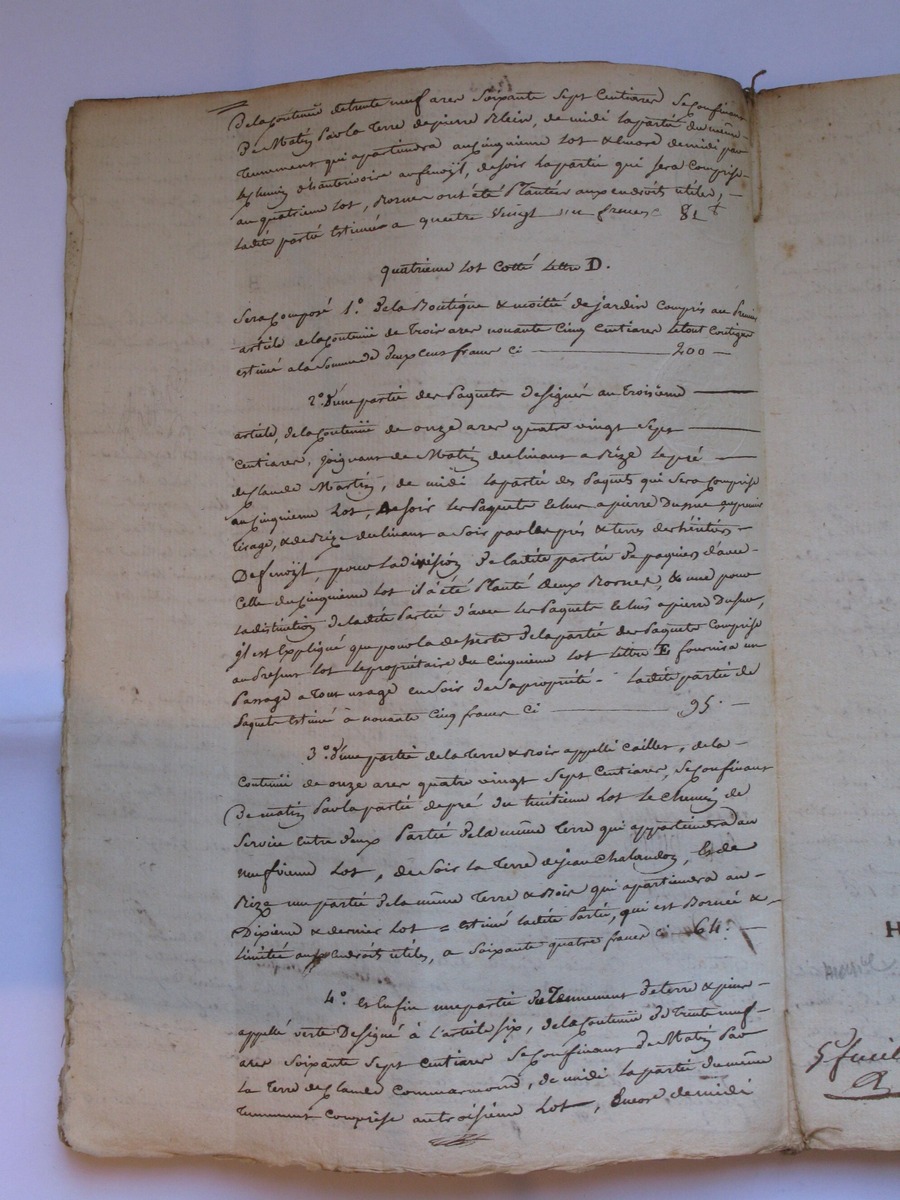 De la Contenüe de trente neuf ares Soixante Sept Centiares Se Confinant
De Matin Par la Terre de pierre Klein, de midi la partie du même
Tennement qui apartiendra au Cinquieme Lot & Encore de midi par
Le chemin au finoÿt, de soir la partie qui sera Comprise
au quatrieme Lot, Bornes ont été Plantées aux endroits utiles, —
Ladite partie Estimée a quatre Vingt un francs 81
quatrieme Lot Cotté Lettre D.
Sera Composé 1.º De la Boutique & moitié de jardin Compris au Premier
article de la Contenüe de Trois ares nonante Cinq Centiares Le tout Contigu
estimé a la Somme de Deux Cens francs Ci — 200 —
2.º D'une partie des Paquets Designés au Troisieme —
article, de la Contenüe de onze ares quatre vingt Sept —
Centiares, Joignant de Matin declinant a Bize le pré —
de Claude Martin, de midi la partie des Paquets qui Sera Comprise
au Cinquieme Lot, de Soir les Paquets Echus a pierre Dusuc au premier
Tirage, & de Bize declinant a Soir par les prés & terres des héritiers —
De finoÿt pour la Division De la dite partie De paquiers d'avec
Celle du Cinquieme Lot il a été Planté Deux Bornes, & une pour
La distinction De ladite Partie D'avec les Paquets Echus a pierre Dusuc,
il est Expliqué que pour la desserte De la partie des Paquets Comprise
au Present Lot Le propriétaire du Cinquieme Lot Lettre E fournira un
Passage a Tout usage en Soir de Sa propriété - Ladite partie de
Paquets Estimée à nonante Cinq francs Ci — 95. —
3.º D'une partie de la Terre & Bois appellé Cailler, de la —
Contenüe de onze ares quatre vingt Sept Centiares, Se Confinant
De matin Par la partie de pré du huitieme Lot le Chemin de
Service Entre Deux Partie De la même Terre qui appartiendra au
neufvieme Lot, de Soir la Terre de jean Chalandon, & de
Bize une partie De la même Terre & Bois qui apartiendra au —
Dixieme & dernier Lot = Estimé ladite Partie, qui est Bornée & —
Limitée aux Endroits utiles, a Soixante quatre francs Ci — 64. —
4.º Et Enfin une partie du Tennement de terre &
appellé verte Designé à L'article Six, de la Contenüe De Trente neuf —
ares Soixante Sept Centiares Se Confinant De Matin Par
La Terre de Claude Commarmond, de midi la partie Du même
Tennement Comprise au troisième Lot, Encore de midi
H